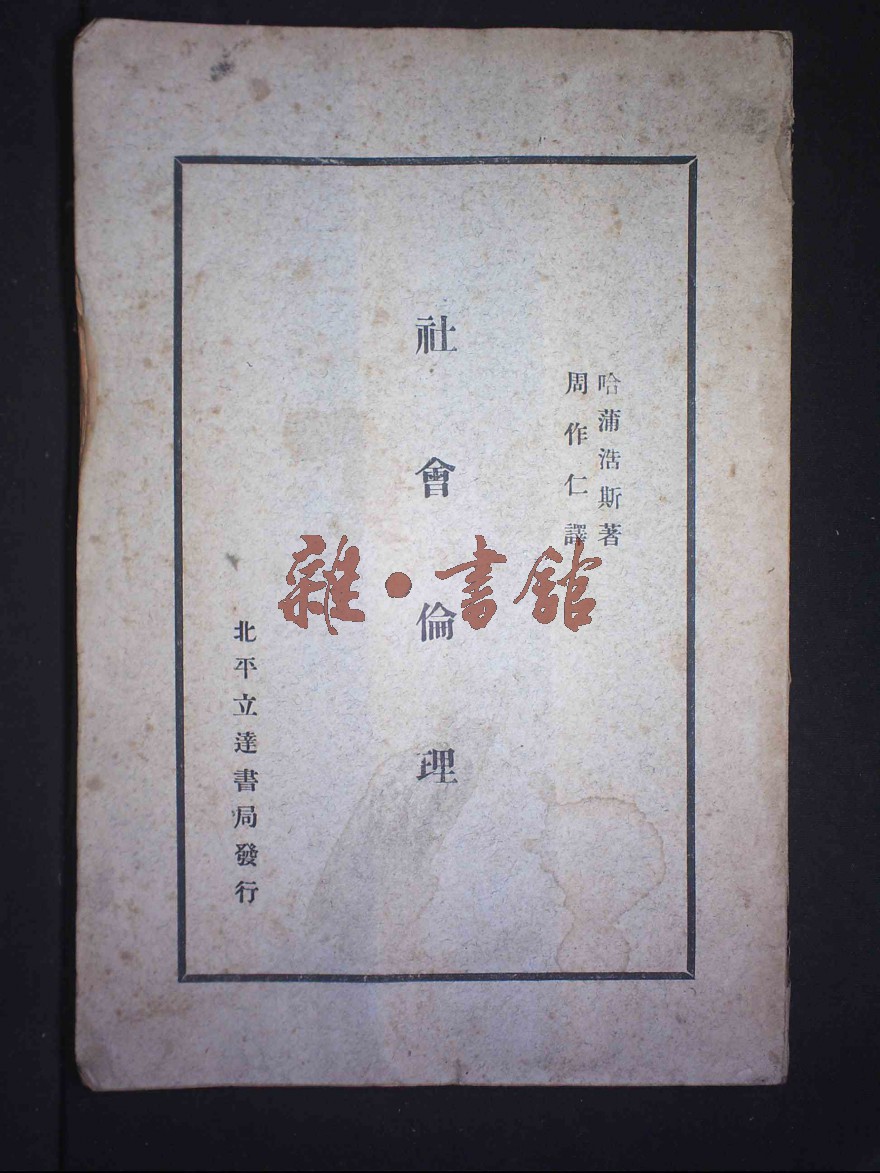 哈蒲浩斯著
周作仁譯
社會倫理
北平立達書局發行
雜·書館